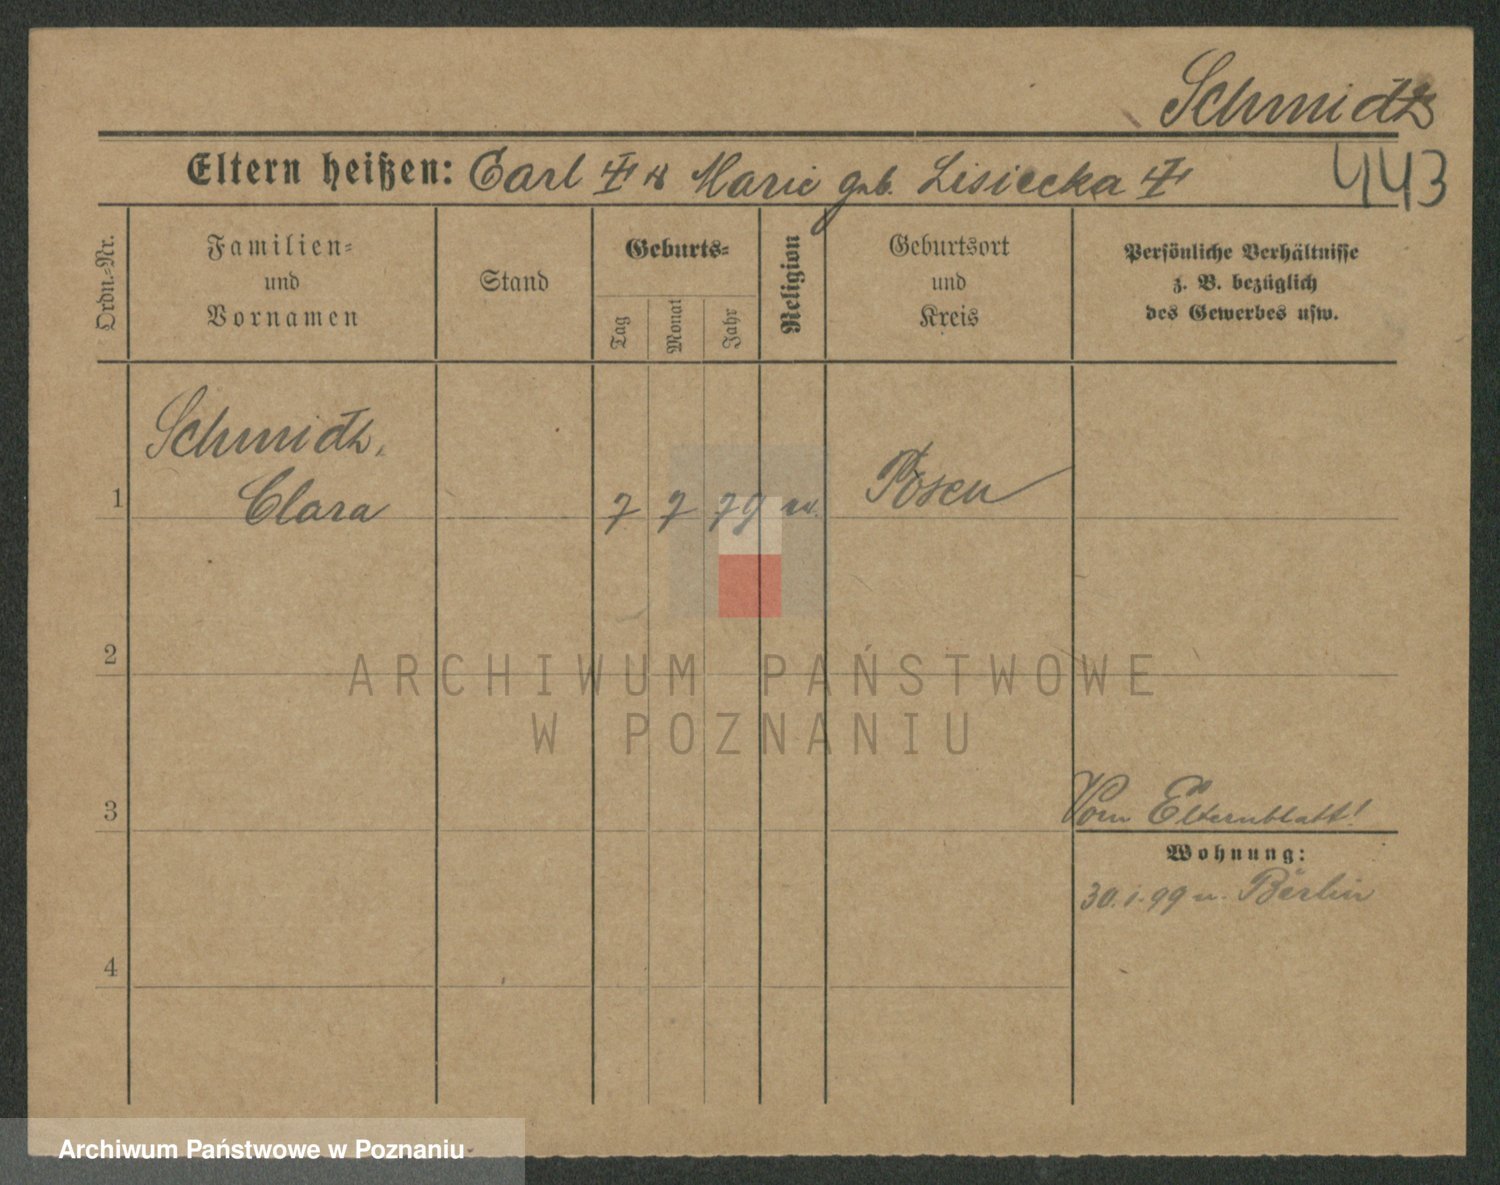 Schmidt
443
Eltern heißen: Carl ‡ u Marie geb. Lisiecka ‡
Ordn.=Nr.
Familien=
und
Vornamen
Stand
Geburts=
Tag
Monat
Jahr
Religion
Geburtsort
und
Kreis
Persönliche Verhältnisse
z. B. bezüglich
des Gewerbes usw.
Schmidt,
1 Clara 7 7 79 Posen
2
3
Vom Elternblatt!
Wohnung:
30.1.99 n. Berlin
4
ARCHIWUM PAŃSTWOWE
W POZNANIU
Archiwum Państwowe w Poznaniu